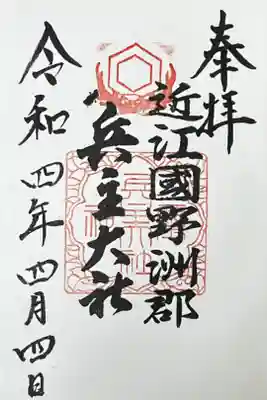 奉拝
近江國野洲郡
兵主大社
令和四年四月四日